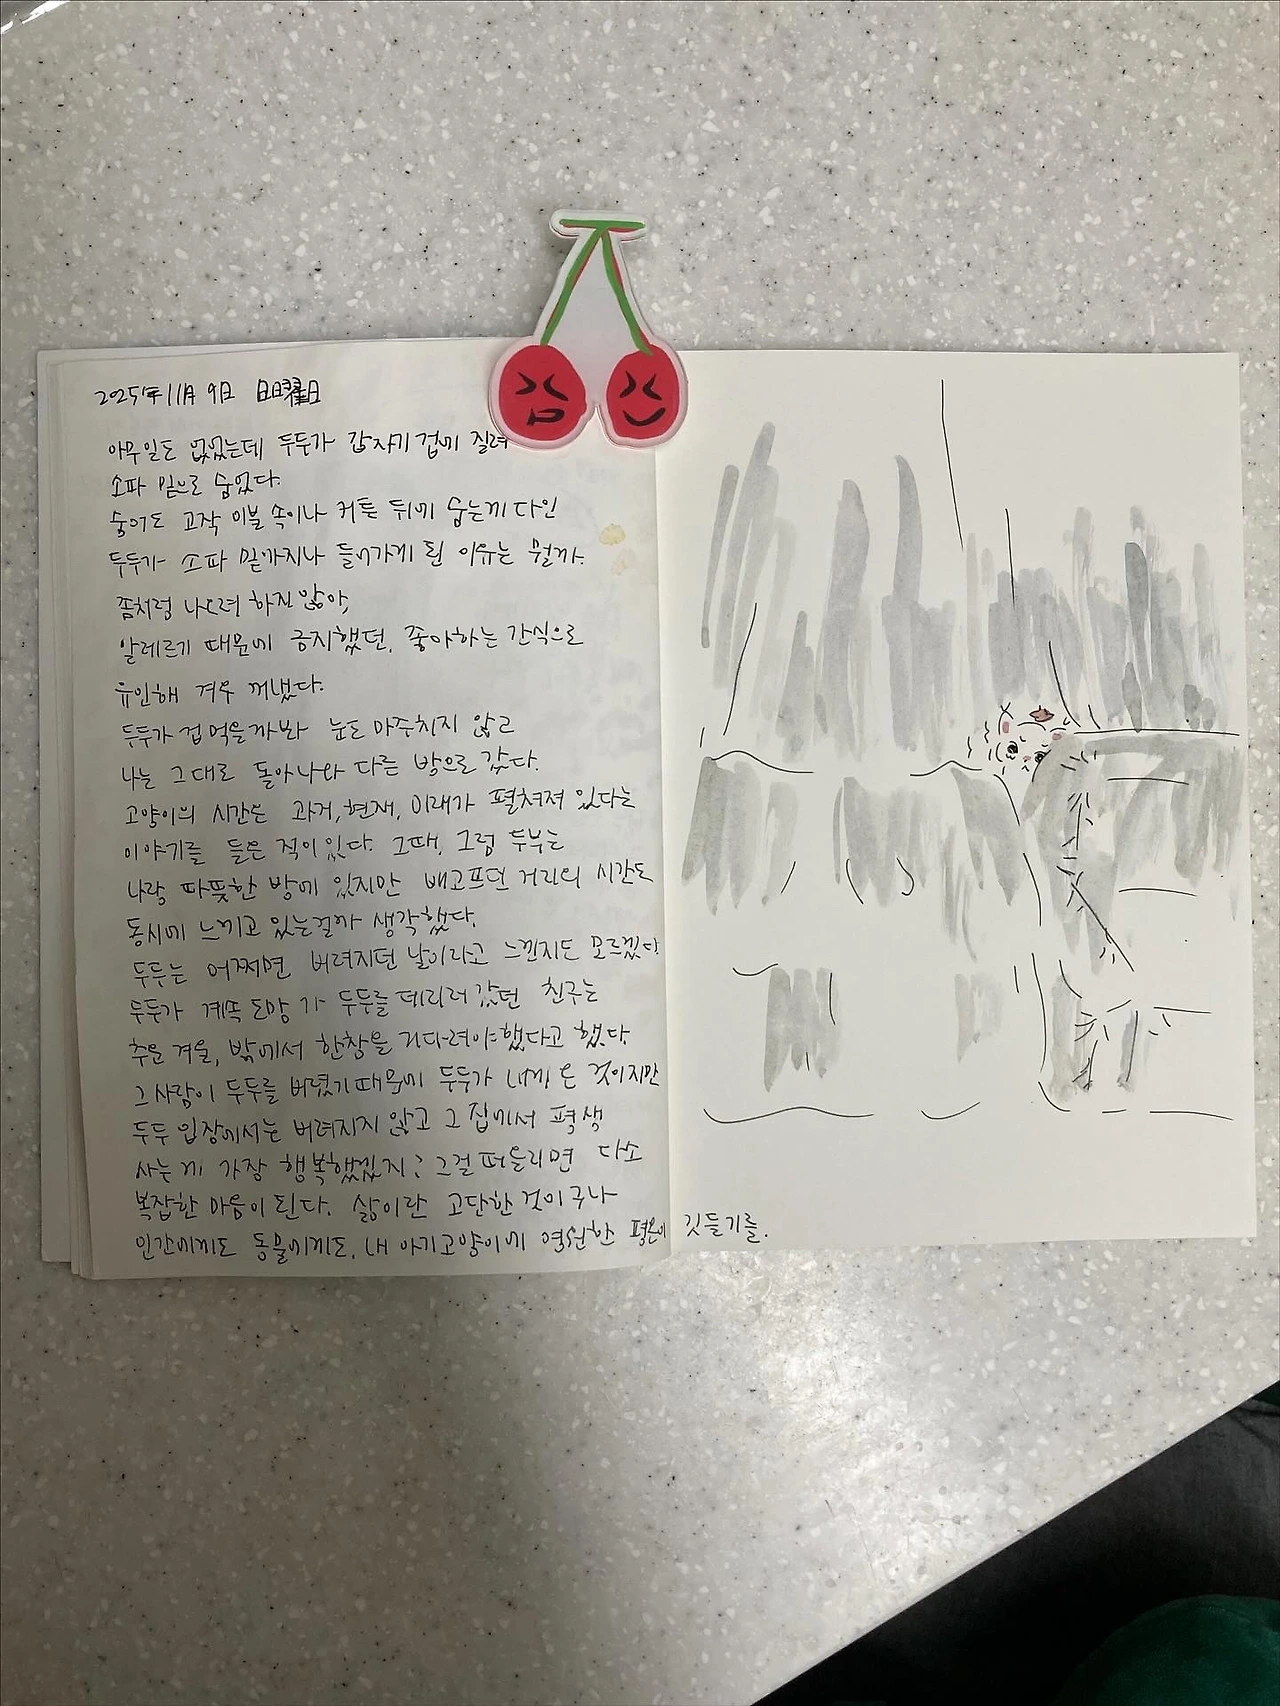 2025年11月 9日 日曜日
아무일도 없었는데 두두가 갑자기 겁에 질려
소파 밑으로 숨었다.
숨어도 고작 이불 속이나 커튼 뒤에 숨는게 다인
두두가 소파 밑까지나 들어가게 된 이유는 뭘까.
좀처럼 나오려 하진 않아,
알레르기 때문에 금지했던, 좋아하는 간식으로
유인해 겨우 꺼냈다.
두두가 겁 먹을까봐 눈도 마주치지 않고
나는 그대로 돌아나와 다른 방으로 갔다.
고양이의 시간은 과거, 현재, 미래가 펼쳐져 있다는
이야기를 들은 적이 있다. 그때, 그럼 두부는
나랑 따뜻한 방에 있지만 배고프던 거리의 시간도
동시에 느끼고 있는걸까 생각했다.
두두는 어쩌면 버려지던 날이라고 느낀지도 모르겠다
두두가 계속 도망 가 두두를 데리러 갔던 친구는
추운 겨울, 밖에서 한참을 기다려야했다고 했다.
그 사람이 두두를 버렸기 때문에 두두가 내게 온 것이지만
두두 입장에서는 버려지지 않고 그 집에서 평생
사는게 가장 행복했겠지? 그걸 떠올리면 다소
복잡한 마음이 된다. 삶이란 고단한 것이구나
인간에게도 동물에게도, 내 아기고양이에 영원한 평온이 깃들기를.